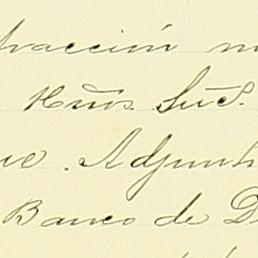 tracción
Hños. Suc.
Adjunt
Banco de D